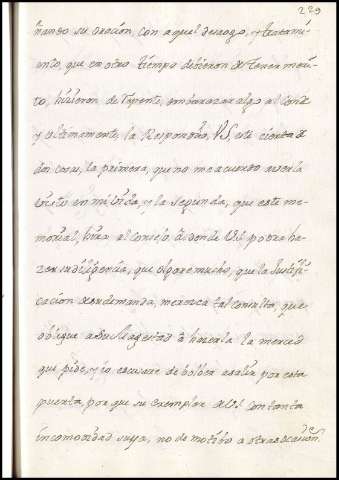 229
ñando su oracion, con aquel desaogo, y tratami-
ento, que en otro tiempo debieron de tener meri-
to, hizieron de repente, embarazar algo al conde
y ultimamente, la Respondio, VS, esté cierta de
dos cosas, la primera, que no me acuerdo averla
visto en mi vida, y la segunda, que este me-
morial, hira al consejo, a donde VS podra ha-
zer su diligencia, que olgare mucho, que la Justifi-
cacion de su demanda, merezca tal consulta, que
obligue a Su Magestad à hazerla la merced
que pide, y io escusare de bolber a salir por esta
puerta, por que su exemplar de VS con tanta
incomodidad suya, no de motibo a otras ocasion